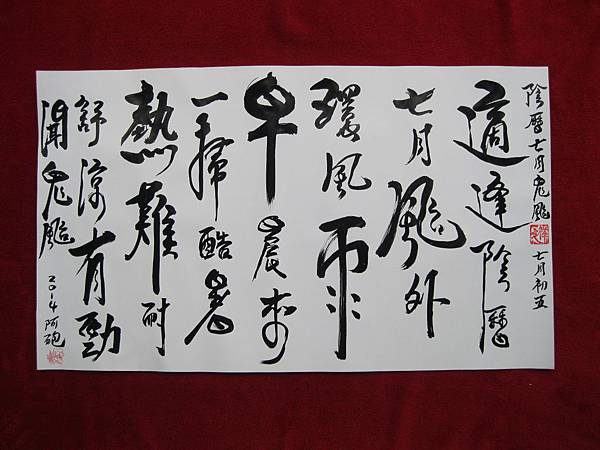 陰曆七月鬼颱 七月初五
適逢陰曆
七月颱外
環風雨
早晨來
一掃酷暑
熱難耐
舒涼有勁
聞鬼颱
2014 阿砲